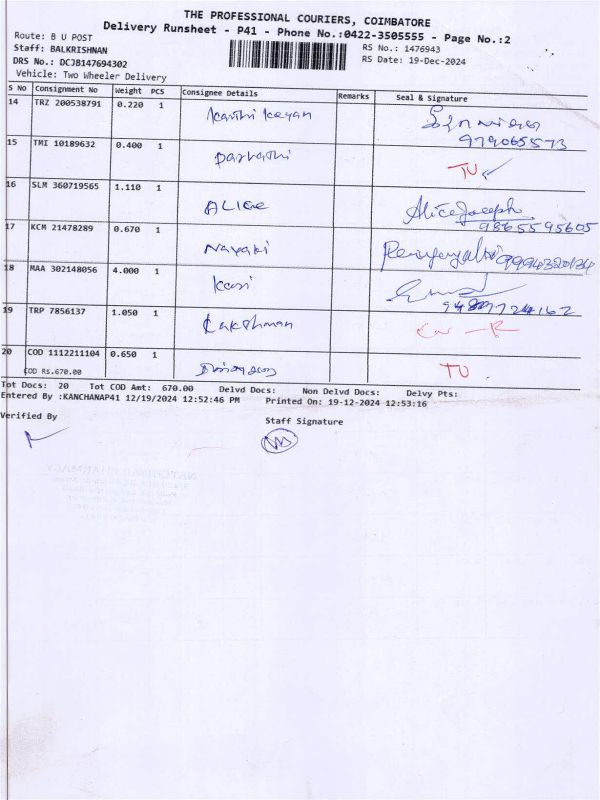 THE PROFESSIONAL COURIERS, COIMBATORE
Delivery Runsheet - P41 - Phone No.:0422-3505555 - Page No.:2
Route: B U POST
Staff: BALKRISHNAN RS No.: 1476943
DRS No.: DCJB147694302 RS Date: 19-Dec-2024
Vehicle: Two Wheeler Delivery
S No Consignment No Weight PCS Consignee Details Remarks Seal & Signature
14 TRZ 200538791 0.220 1 Karthi Keyan
15 TMI 10189632 0.400 1 Parvathi TU
16 SLM 360719565 1.110 1 ALICE Alice Joseph
9865595605
17 KCM 21478289 0.670 1 Nayaki
18 MAA 302148056 4.000 1 Kasi
19 TRP 7856137 1.050 1 Lakshman
20 COD 1112211104 0.650 1 TU
COD Rs.670.00
Tot Docs: 20 Tot COD Amt: 670.00 Delvd Docs: Non Delvd Docs: Delvy Pts:
Entered By :KANCHANAP41 12/19/2024 12:52:46 PM Printed On: 19-12-2024 12:53:16
Verified By Staff Signature